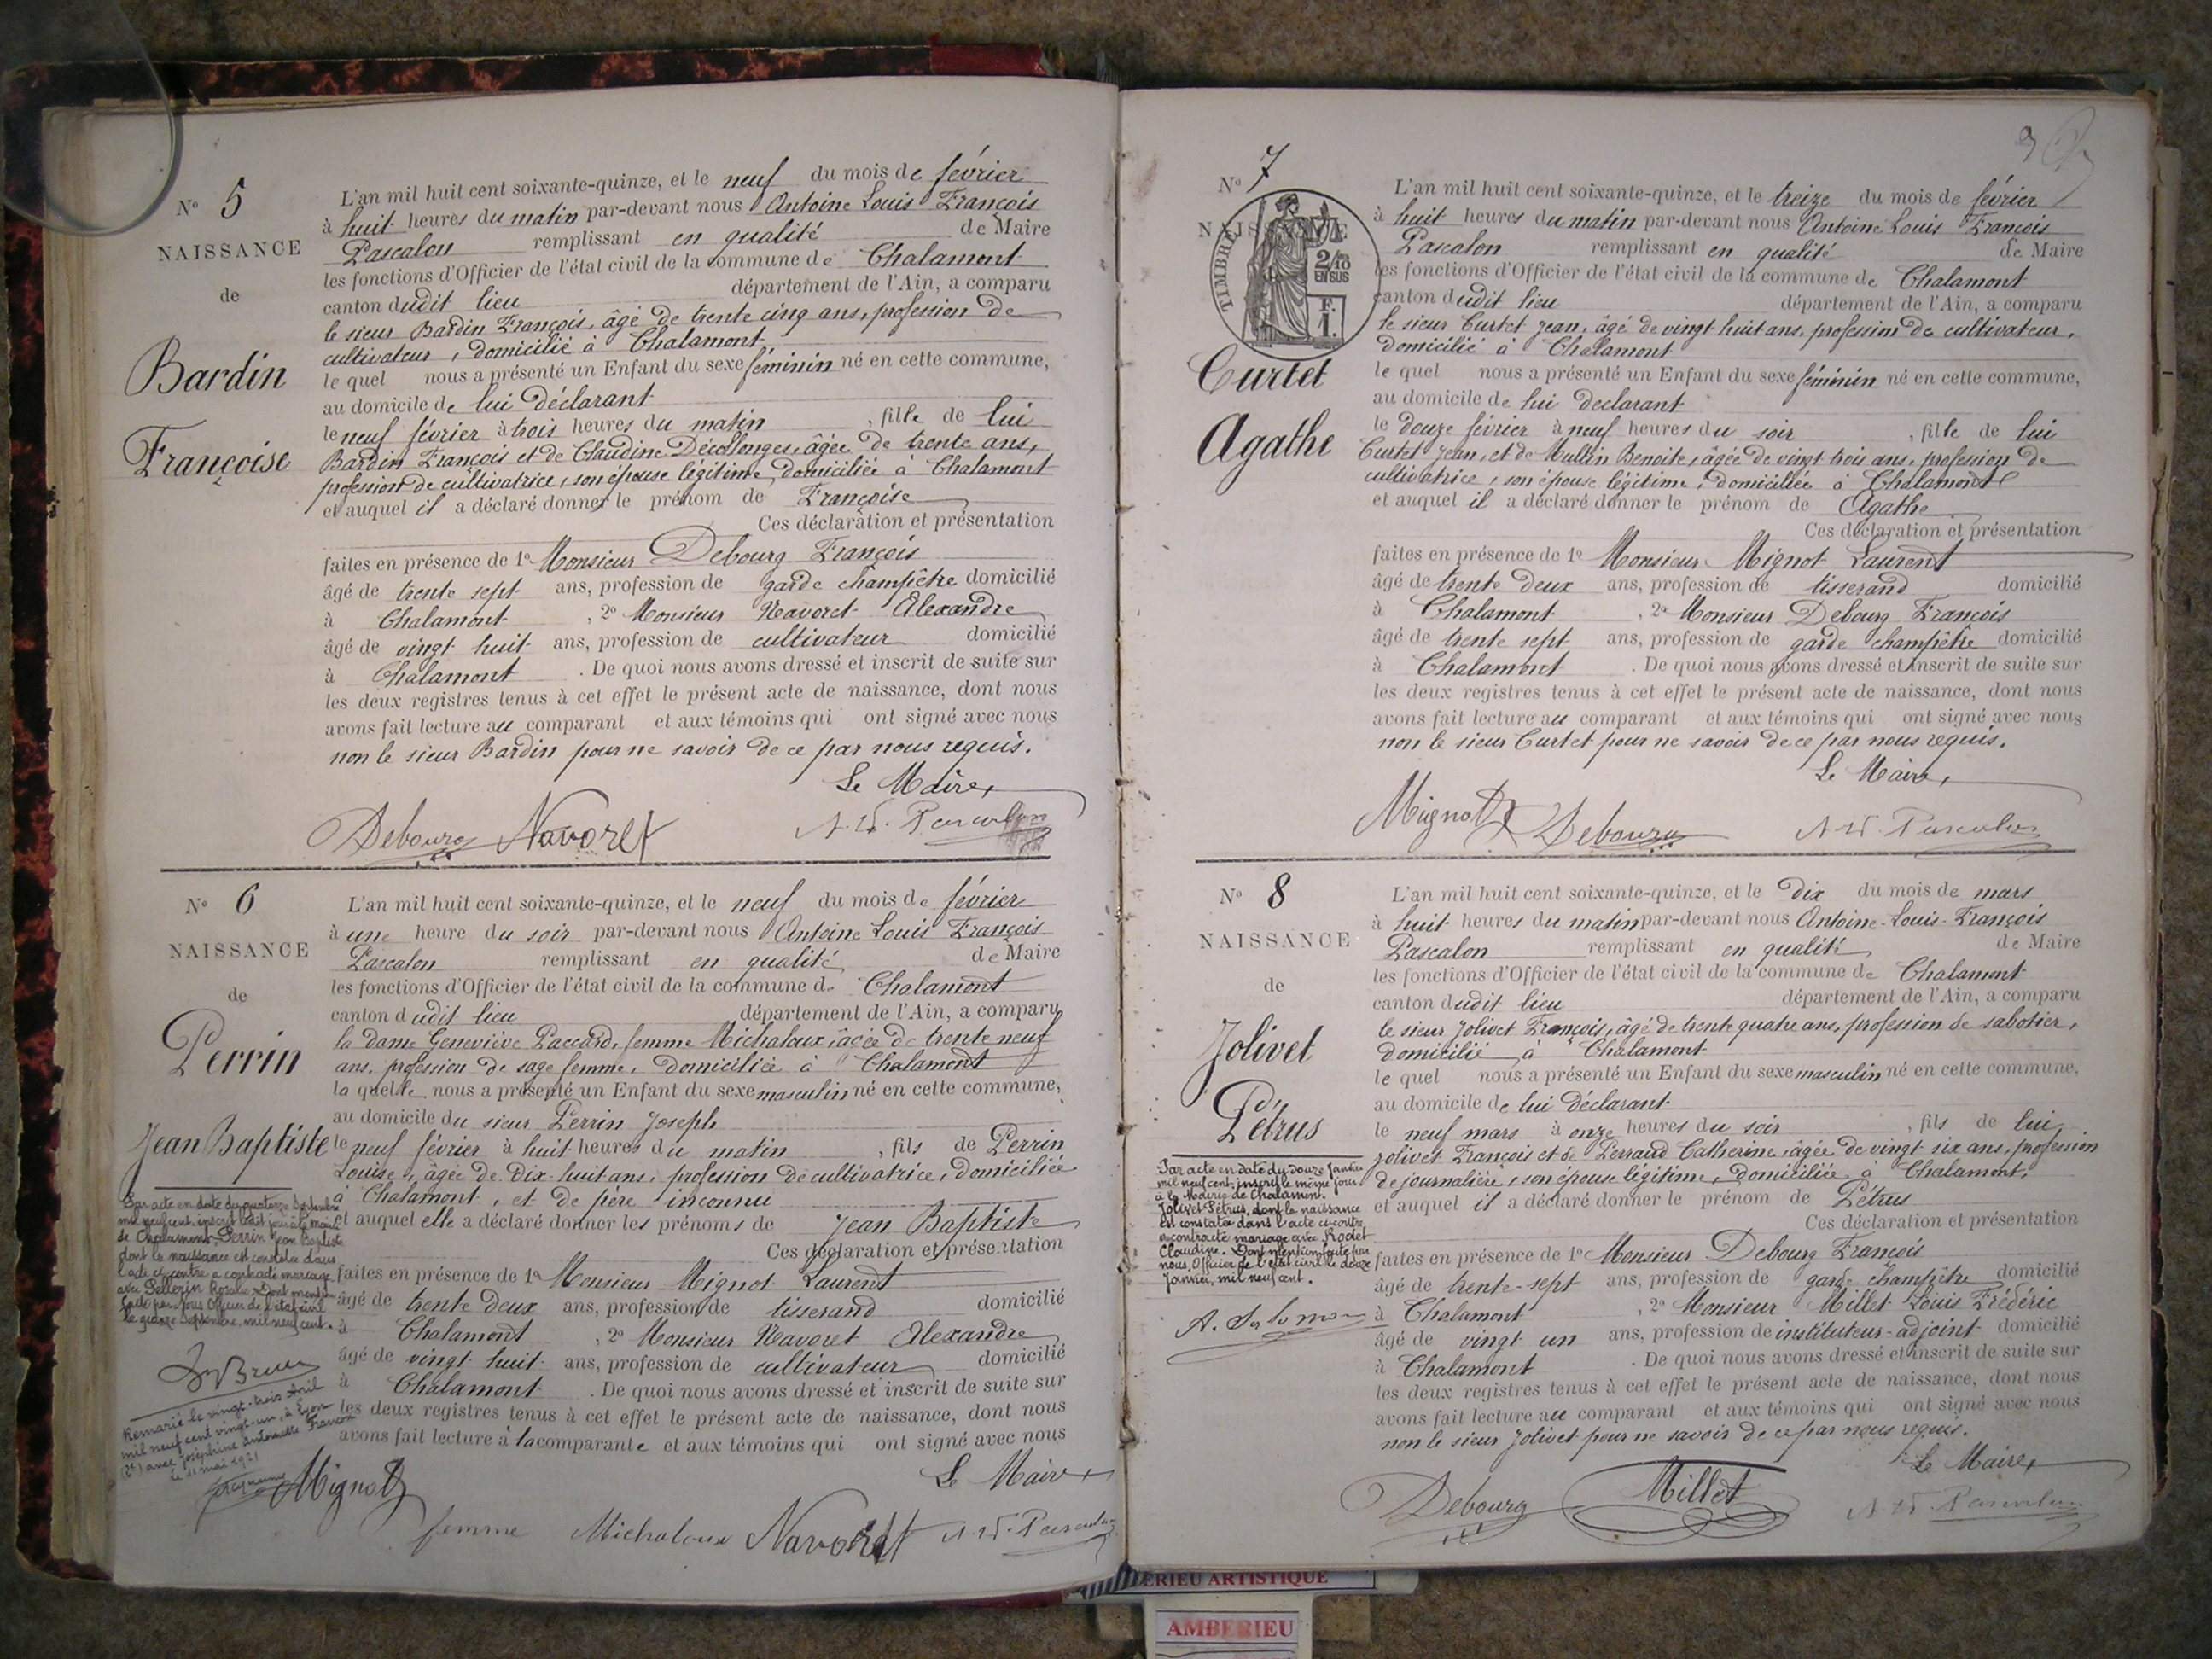 N° 5
NAISSANCE
de
Bardin
Françoise
L'an mil huit cent soixante-quinze, et le neuf du mois de février
à huit heures du matin par-devant nous Antoine Louis François
Pascalon remplissant en qualité de Maire
les fonctions d'Officier de l'état civil de la commune de Chalamont
canton dudit lieu département de l'Ain, a comparu
le sieur Bardin François, âgé de trente cinq ans, profession de
cultivateur, domicilié à Chalamont
le quel nous a présenté un Enfant du sexe féminin né en cette commune,
au domicile de lui déclarant
le neuf février à trois heures du matin, fille de lui
Bardin François et de Claudine Décollonges, âgée de trente ans,
profession de cultivatrice, son épouse légitime, domiciliée à Chalamont
et auquel il a déclaré donner le prénom de Françoise
Ces déclaration et présentation
faites en présence de 1° Monsieur Debourg François
âgé de trente sept ans, profession de garde champêtre domicilié
à Chalamont, 2° Monsieur Navoret Alexandre
âgé de vingt huit ans, profession de cultivateur domicilié
à Chalamont. De quoi nous avons dressé et inscrit de suite sur
les deux registres tenus à cet effet le présent acte de naissance, dont nous
avons fait lecture au comparant et aux témoins qui ont signé avec nous
non le sieur Bardin pour ne savoir de ce par nous requis.
Le Maire,
Debourg Navoret A. L. F. Pascalon
N° 6
NAISSANCE
de
Perrin
Jean Baptiste
L'an mil huit cent soixante-quinze, et le neuf du mois de février
à une heure du soir par-devant nous Antoine Louis François
Pascalon remplissant en qualité de Maire
les fonctions d'Officier de l'état civil de la commune de Chalamont
canton dudit lieu département de l'Ain, a comparu
la dame Geneviève Paccard, femme Michaloux, âgée de trente neuf
ans, profession de sage femme, domiciliée à Chalamont
la quelle nous a présenté un Enfant du sexe masculin né en cette commune,
au domicile du sieur Perrin Joseph
le neuf février à huit heures du matin, fils de Perrin
Louise, âgée de dix-huit ans, profession de cultivatrice, domiciliée
à Chalamont, et de père inconnu
et auquel elle a déclaré donner les prénoms de Jean Baptiste
Ces déclaration et présentation
faites en présence de 1° Monsieur Mignot Laurent
âgé de trente deux ans, profession de tisserand domicilié
à Chalamont, 2° Monsieur Navoret Alexandre
âgé de vingt huit ans, profession de cultivateur domicilié
à Chalamont. De quoi nous avons dressé et inscrit de suite sur
les deux registres tenus à cet effet le présent acte de naissance, dont nous
avons fait lecture à la comparante et aux témoins qui ont signé avec nous
Le Maire
Par acte en date du quatorze Septembre
mil neuf cent, inscrit ledit jour à la mairie
de Chalamont, Perrin Jean Baptiste
dont la naissance est constatée dans
l'acte ci-contre a contracté mariage
avec Pellerin Rosalie. Dont mention
faite par nous Officier de l'état civil
le quinze Septembre, mil neuf cent.
Remarié le vingt-trois Avril
mil neuf cent vingt-un, à Lyon
avec Joséphine Antoinette
le 11 mai 1921
Mignot
femme Michaloux Navoret A. L. F. Pascalon
N° 7
NAISSANCE
TIMBRE
2/10
EN SUS
F.
1.
Curtet
Agathe
L'an mil huit cent soixante-quinze, et le treize du mois de février
à huit heures du matin par-devant nous Antoine Louis François
Pascalon remplissant en qualité de Maire
les fonctions d'Officier de l'état civil de la commune de Chalamont
canton dudit lieu département de l'Ain, a comparu
le sieur Curtet Jean, âgé de vingt huit ans, profession de cultivateur,
domicilié à Chalamont
le quel nous a présenté un Enfant du sexe féminin né en cette commune,
au domicile de lui déclarant
le douze février à neuf heures du soir, fille de lui
Curtet Jean, et de Mullin Benoite, âgée de vingt trois ans, profession de
cultivatrice, son épouse légitime, domiciliée à Chalamont
et auquel il a déclaré donner le prénom de Agathe
Ces déclaration et présentation
faites en présence de 1° Monsieur Mignot Laurent
âgé de trente deux ans, profession de tisserand domicilié
à Chalamont, 2° Monsieur Debourg François
âgé de trente sept ans, profession de garde champêtre domicilié
à Chalamont. De quoi nous avons dressé et inscrit de suite sur
les deux registres tenus à cet effet le présent acte de naissance, dont nous
avons fait lecture au comparant et aux témoins qui ont signé avec nous
non le sieur Curtet pour ne savoir de ce par nous requis.
Le Maire,
Mignot Debourg A. L. F. Pascalon
N° 8
NAISSANCE
de
Jolivet
Pétrus
L'an mil huit cent soixante-quinze, et le dix du mois de mars
à huit heures du matin par-devant nous Antoine-Louis-François
Pascalon remplissant en qualité de Maire
les fonctions d'Officier de l'état civil de la commune de Chalamont
canton dudit lieu département de l'Ain, a comparu
le sieur Jolivet François, âgé de trente quatre ans, profession de sabotier,
domicilié à Chalamont
le quel nous a présenté un Enfant du sexe masculin né en cette commune,
au domicile de lui déclarant
le neuf mars à onze heures du soir, fils de lui
Jolivet François et de Perraud Catherine, âgée de vingt six ans, profession
de journalière, son épouse légitime, domiciliée à Chalamont,
et auquel il a déclaré donner le prénom de Pétrus
Ces déclaration et présentation
faites en présence de 1° Monsieur Debourg François
âgé de trente-sept ans, profession de garde champêtre domicilié
à Chalamont, 2° Monsieur Millet Louis Frédéric
âgé de vingt un ans, profession de instituteur-adjoint domicilié
à Chalamont. De quoi nous avons dressé et inscrit de suite sur
les deux registres tenus à cet effet le présent acte de naissance, dont nous
avons fait lecture au comparant et aux témoins qui ont signé avec nous
non le sieur Jolivet pour ne savoir de ce par nous requis.
Le Maire,
Par acte en date du douze Janvier
mil neuf cent, inscrit le même jour
à la Mairie de Chalamont.
Jolivet Pétrus, dont la naissance
est constatée dans l'acte ci-contre
a contracté mariage avec Rodet
Claudine. Dont mention faite par
nous, Officier de l'état civil le douze
Janvier, mil neuf cent.
A. Salomon
Debourg Millet A. L. F. Pascalon
ERIEU ARTISTIQUE
AMBERIEU